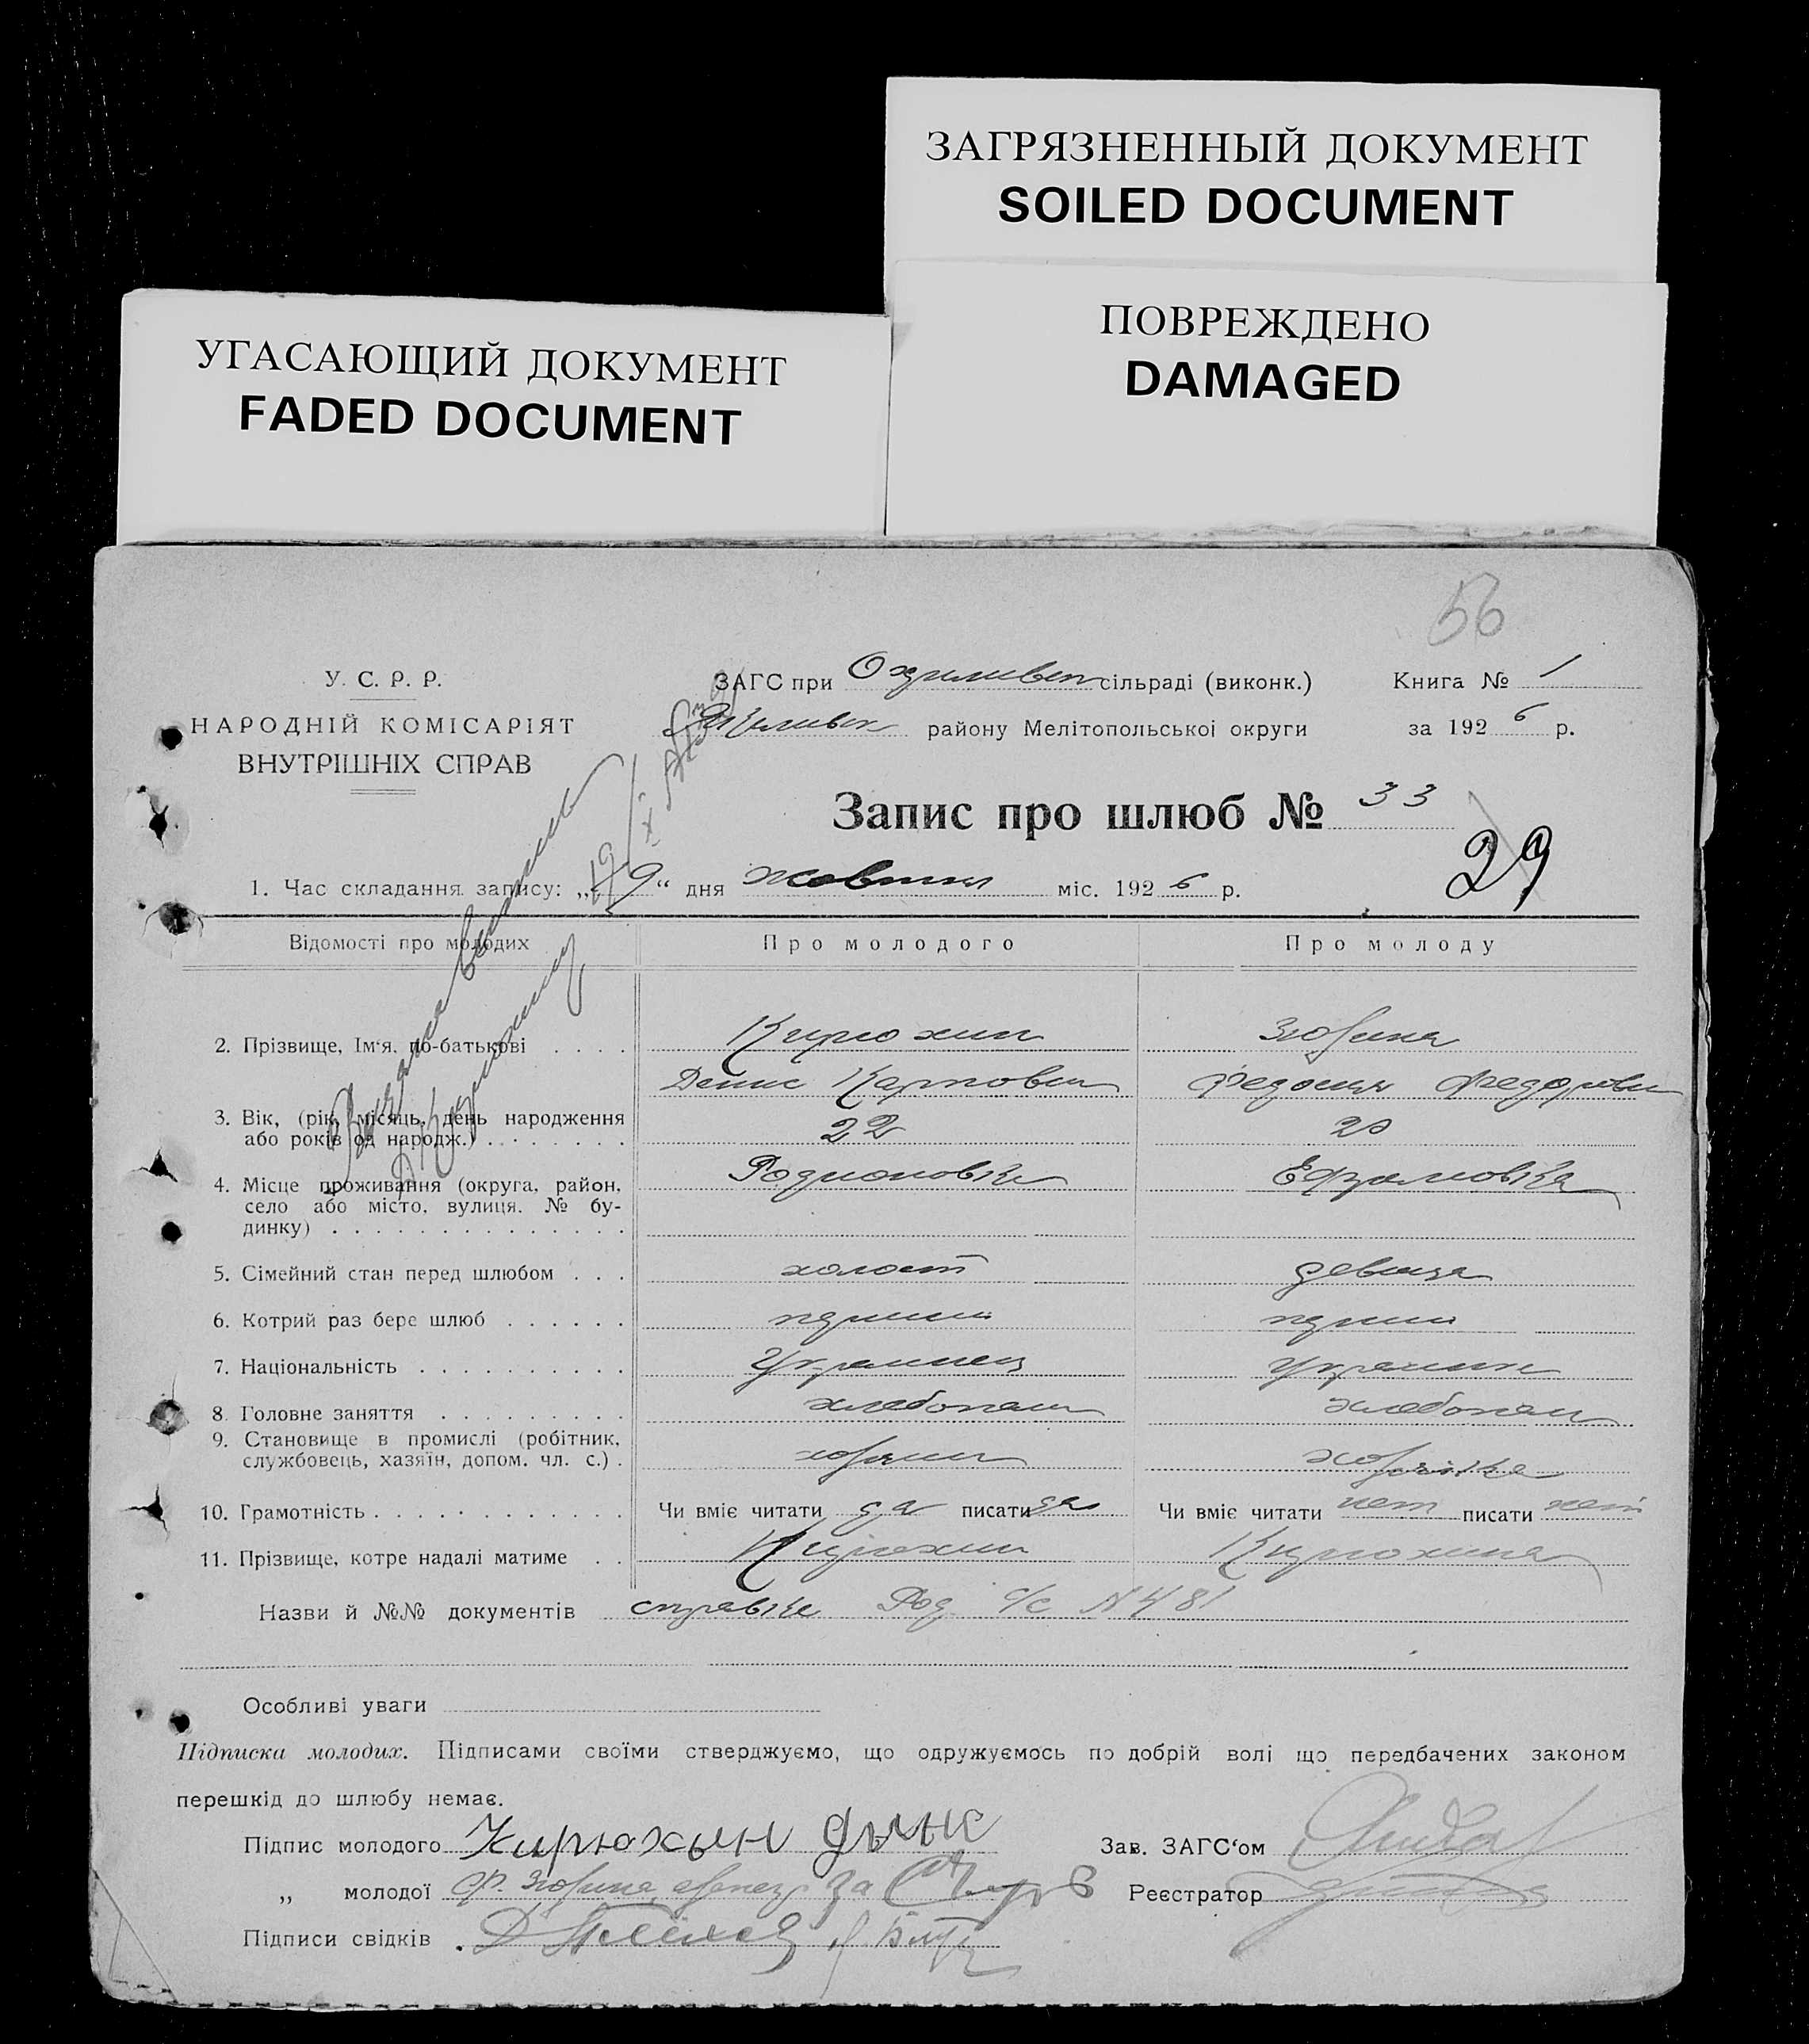 ЗАГРЯЗНЕННЫЙ ДОКУМЕНТ
SOILED DOCUMENT
ПОВРЕЖДЕНО
DAMAGED
УГАСАЮЩИЙ ДОКУМЕНТ
FADED DOCUMENT
56
У. С. Р. Р.
НАРОДНІЙ КОМІСАРІЯТ
ВНУТРІШНІХ СПРАВ
ЗАГС при сільраді (виконк.) Книга № 1
району Мелітопольської округи за 1926 р.
Запис про шлюб № 33
29
1. Час складання запису: „19“ дня жовтня міс. 1926 р.
Відомості про молодих Про молодого Про молоду
2. Прізвище, Ім‘я, по-батькові . . . . Кирюхин Зюзина
Денис Карпович Федосия Федоровн
3. Вік, (рік, місяць, день народження
або років од народж.) . . . . . . . 22 20
4. Місце проживання (округа, район, Родионовка Ефремовка
село або місто, вулиця, № бу-
динку) . . . . . . . . . . . . . .
5. Сімейний стан перед шлюбом . . . холост девица
6. Котрий раз бере шлюб . . . . . .
7. Національність . . . . . . . . . . Украинец Украинк
8. Головне заняття . . . . . . . . . хлебопаш хлебопаш
9. Становище в промислі (робітник,
службовець, хазяїн, допом. чл. с.) . хозяин хозяйка
10. Грамотність . . . . . . . . . . . . Чи вміє читати да писати да Чи вміє читати нет писати нет
11. Прізвище, котре надалі матиме . . Кирюхин Кирюхина
Назви й №№ документів справка Род с/с № 481
Особливі уваги
Підписка молодих. Підписами своїми стверджуємо, що одружуємось по добрій волі що передбачених законом
перешкід до шлюбу немає.
Підпис молодого Кирюхын Дынис Зав. ЗАГС‘ом
„ молодої Ф. Зюзина за Реєстратор
Підписи свідків